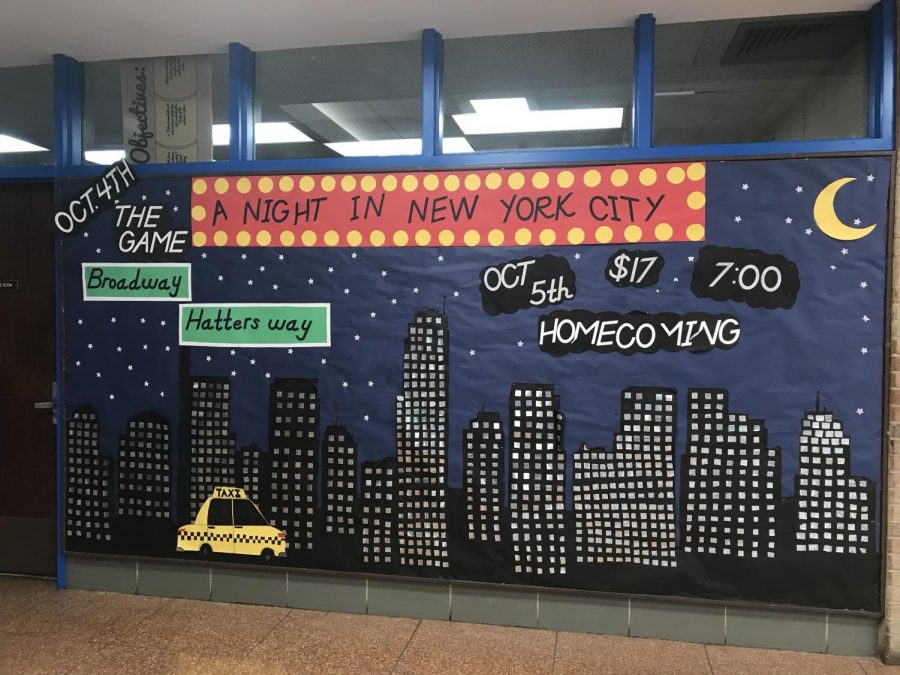 Objectives:
OCT. 4TH
THE
GAME
A NIGHT IN NEW YORK CITY
Broadway
Hatters way
OCT
5th
$17
7:00
HOMECOMING
TAXI